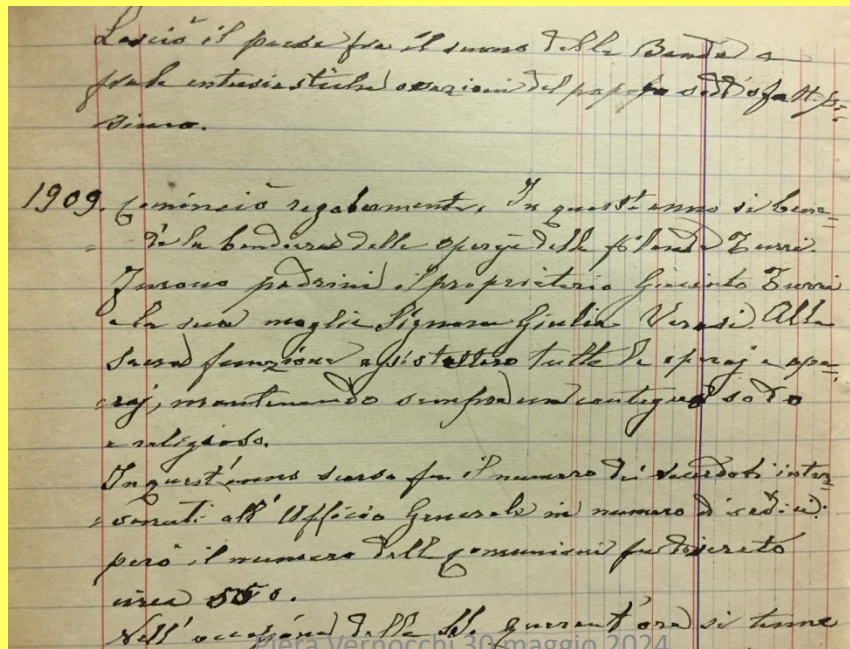 Lasciò il paese fra il suono della Banda e
fra le entusiastiche ovazioni del popolo soddisfattis=
simo.
1909. Cominciò regolarmente. In quest'anno si bene=
=dì la bandiera delle operaje della filanda Turri.
Furono padrini il proprietario Giacinto Turri
e la sua moglie Signora Giulia Verasi. Alla
sacra funzione assistettero tutte le operaje e ope=
raj, mantenendo sempre un contegno sodo
e religioso.
In quest'anno scarso fu il numero dei sacerdoti inter=
=venuti all'Ufficio Generale in numero di sedici:
però il numero delle comunioni fu discreto
circa 550.
Nell'occasione delle SS. Quarant'ore si tenne
Piera Vernocchi 30 maggio 2024